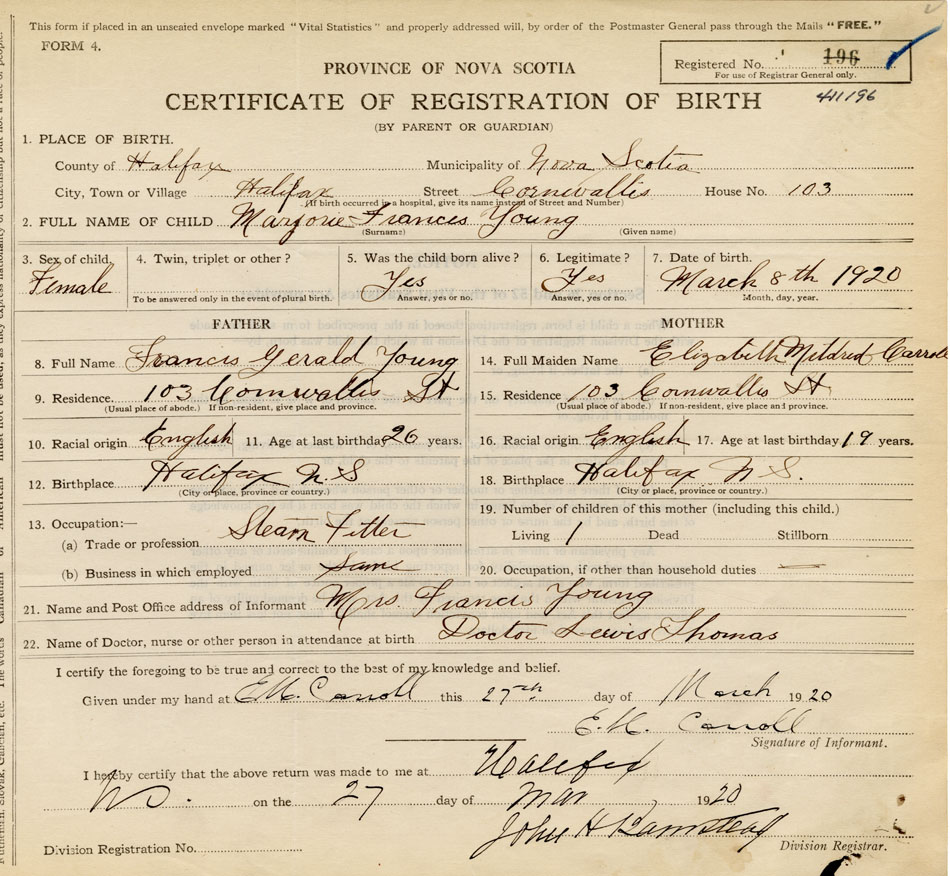 This form if placed in an unsealed envelope marked "Vital Statistics" and properly addressed will, by order of the Postmaster General pass through the Mails "FREE."
FORM 4.
Registered No. 196
For use of Registrar General only.
411196
PROVINCE OF NOVA SCOTIA
CERTIFICATE OF REGISTRATION OF BIRTH
(BY PARENT OR GUARDIAN)
1. PLACE OF BIRTH.
County of Halifax Municipality of Nova Scotia
City, Town or Village Halifax Street Cornwallis House No. 103
(If birth occurred in a hospital, give its name instead of Street and Number)
2. FULL NAME OF CHILD Marjorie Frances Young
(Surname) (Given name)
3. Sex of child. 4. Twin, triplet or other? 5. Was the child born alive? 6. Legitimate? 7. Date of birth.
Female Yes Yes March 8th 1920
To be answered only in the event of plural birth. Answer, yes or no. Answer, yes or no. Month, day, year.
FATHER
8. Full Name Francis Gerald Young
9. Residence. 103 Cornwallis St
(Usual place of abode.) If non-resident, give place and province.
10. Racial origin English 11. Age at last birthday 26 years.
12. Birthplace Halifax N.S
(City or place, province or country.)
13. Occupation:—
(a) Trade or profession Steam Fitter
(b) Business in which employed same
MOTHER
14. Full Maiden Name Elizabeth Mildred Carroll
15. Residence 103 Cornwallis St
(Usual place of abode.) If non-resident, give place and province.
16. Racial origin English 17. Age at last birthday 19 years.
18. Birthplace Halifax N.S.
(City or place, province or country.)
19. Number of children of this mother (including this child.)
Living 1 Dead Stillborn
20. Occupation, if other than household duties —
21. Name and Post Office address of Informant Mrs. Francis Young
22. Name of Doctor, nurse or other person in attendance at birth Doctor Lewis Thomas
I certify the foregoing to be true and correct to the best of my knowledge and belief.
Given under my hand at E.M. Carroll this 27th day of March 1920
E.M. Carroll
Signature of Informant.
I hereby certify that the above return was made to me at Halifax
NS. on the 27 day of Mar, 1920
John H
Division Registration No. Division Registrar.